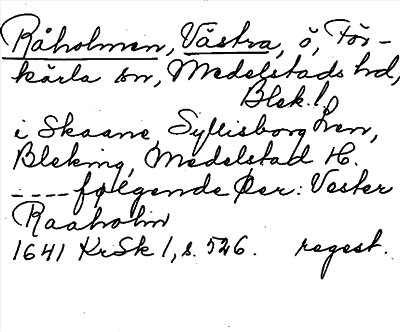 Råholmen, Västra, ö, För-
kärla sn, Medelstads hd,
Blek. l.
i Skaane, Syllisborg Len,
Bleking, Medelstad H.
---- følgende Øer: Vester
Raaholm
1641 KrSk 1, s. 526. regest.